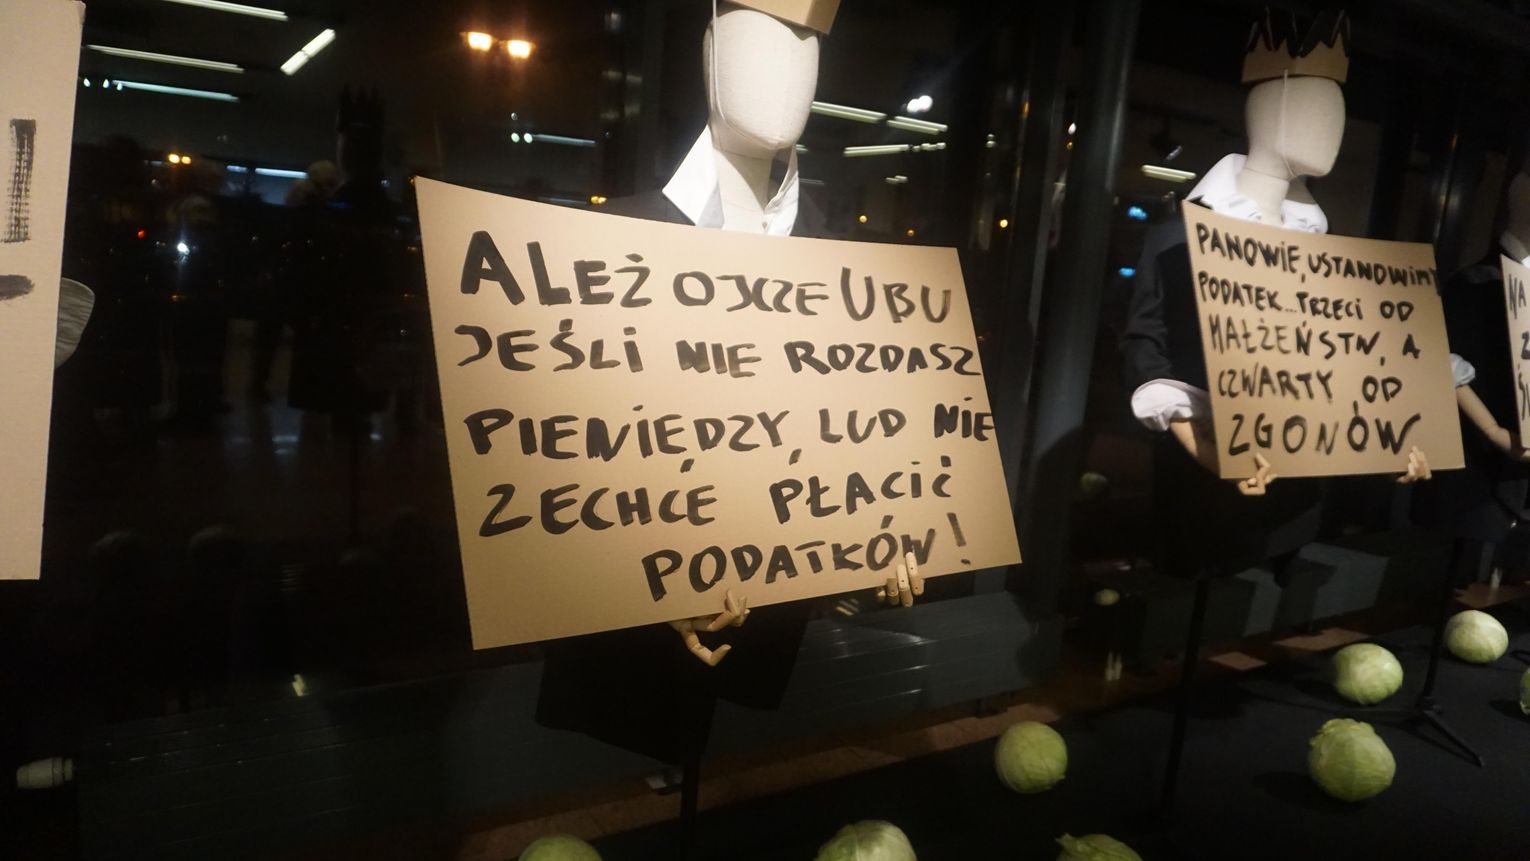 ALEŻ OJCZE UBU
JEŚLI NIE ROZDASZ
PIENIĘDZY, LUD NIE
ZECHCE PŁACIĆ
PODATKÓW!
PANOWIE, USTANOWIMY
PODATEK... TRZECI OD
MAŁŻEŃSTW, A
CZWARTY OD
ZGONÓW
NA